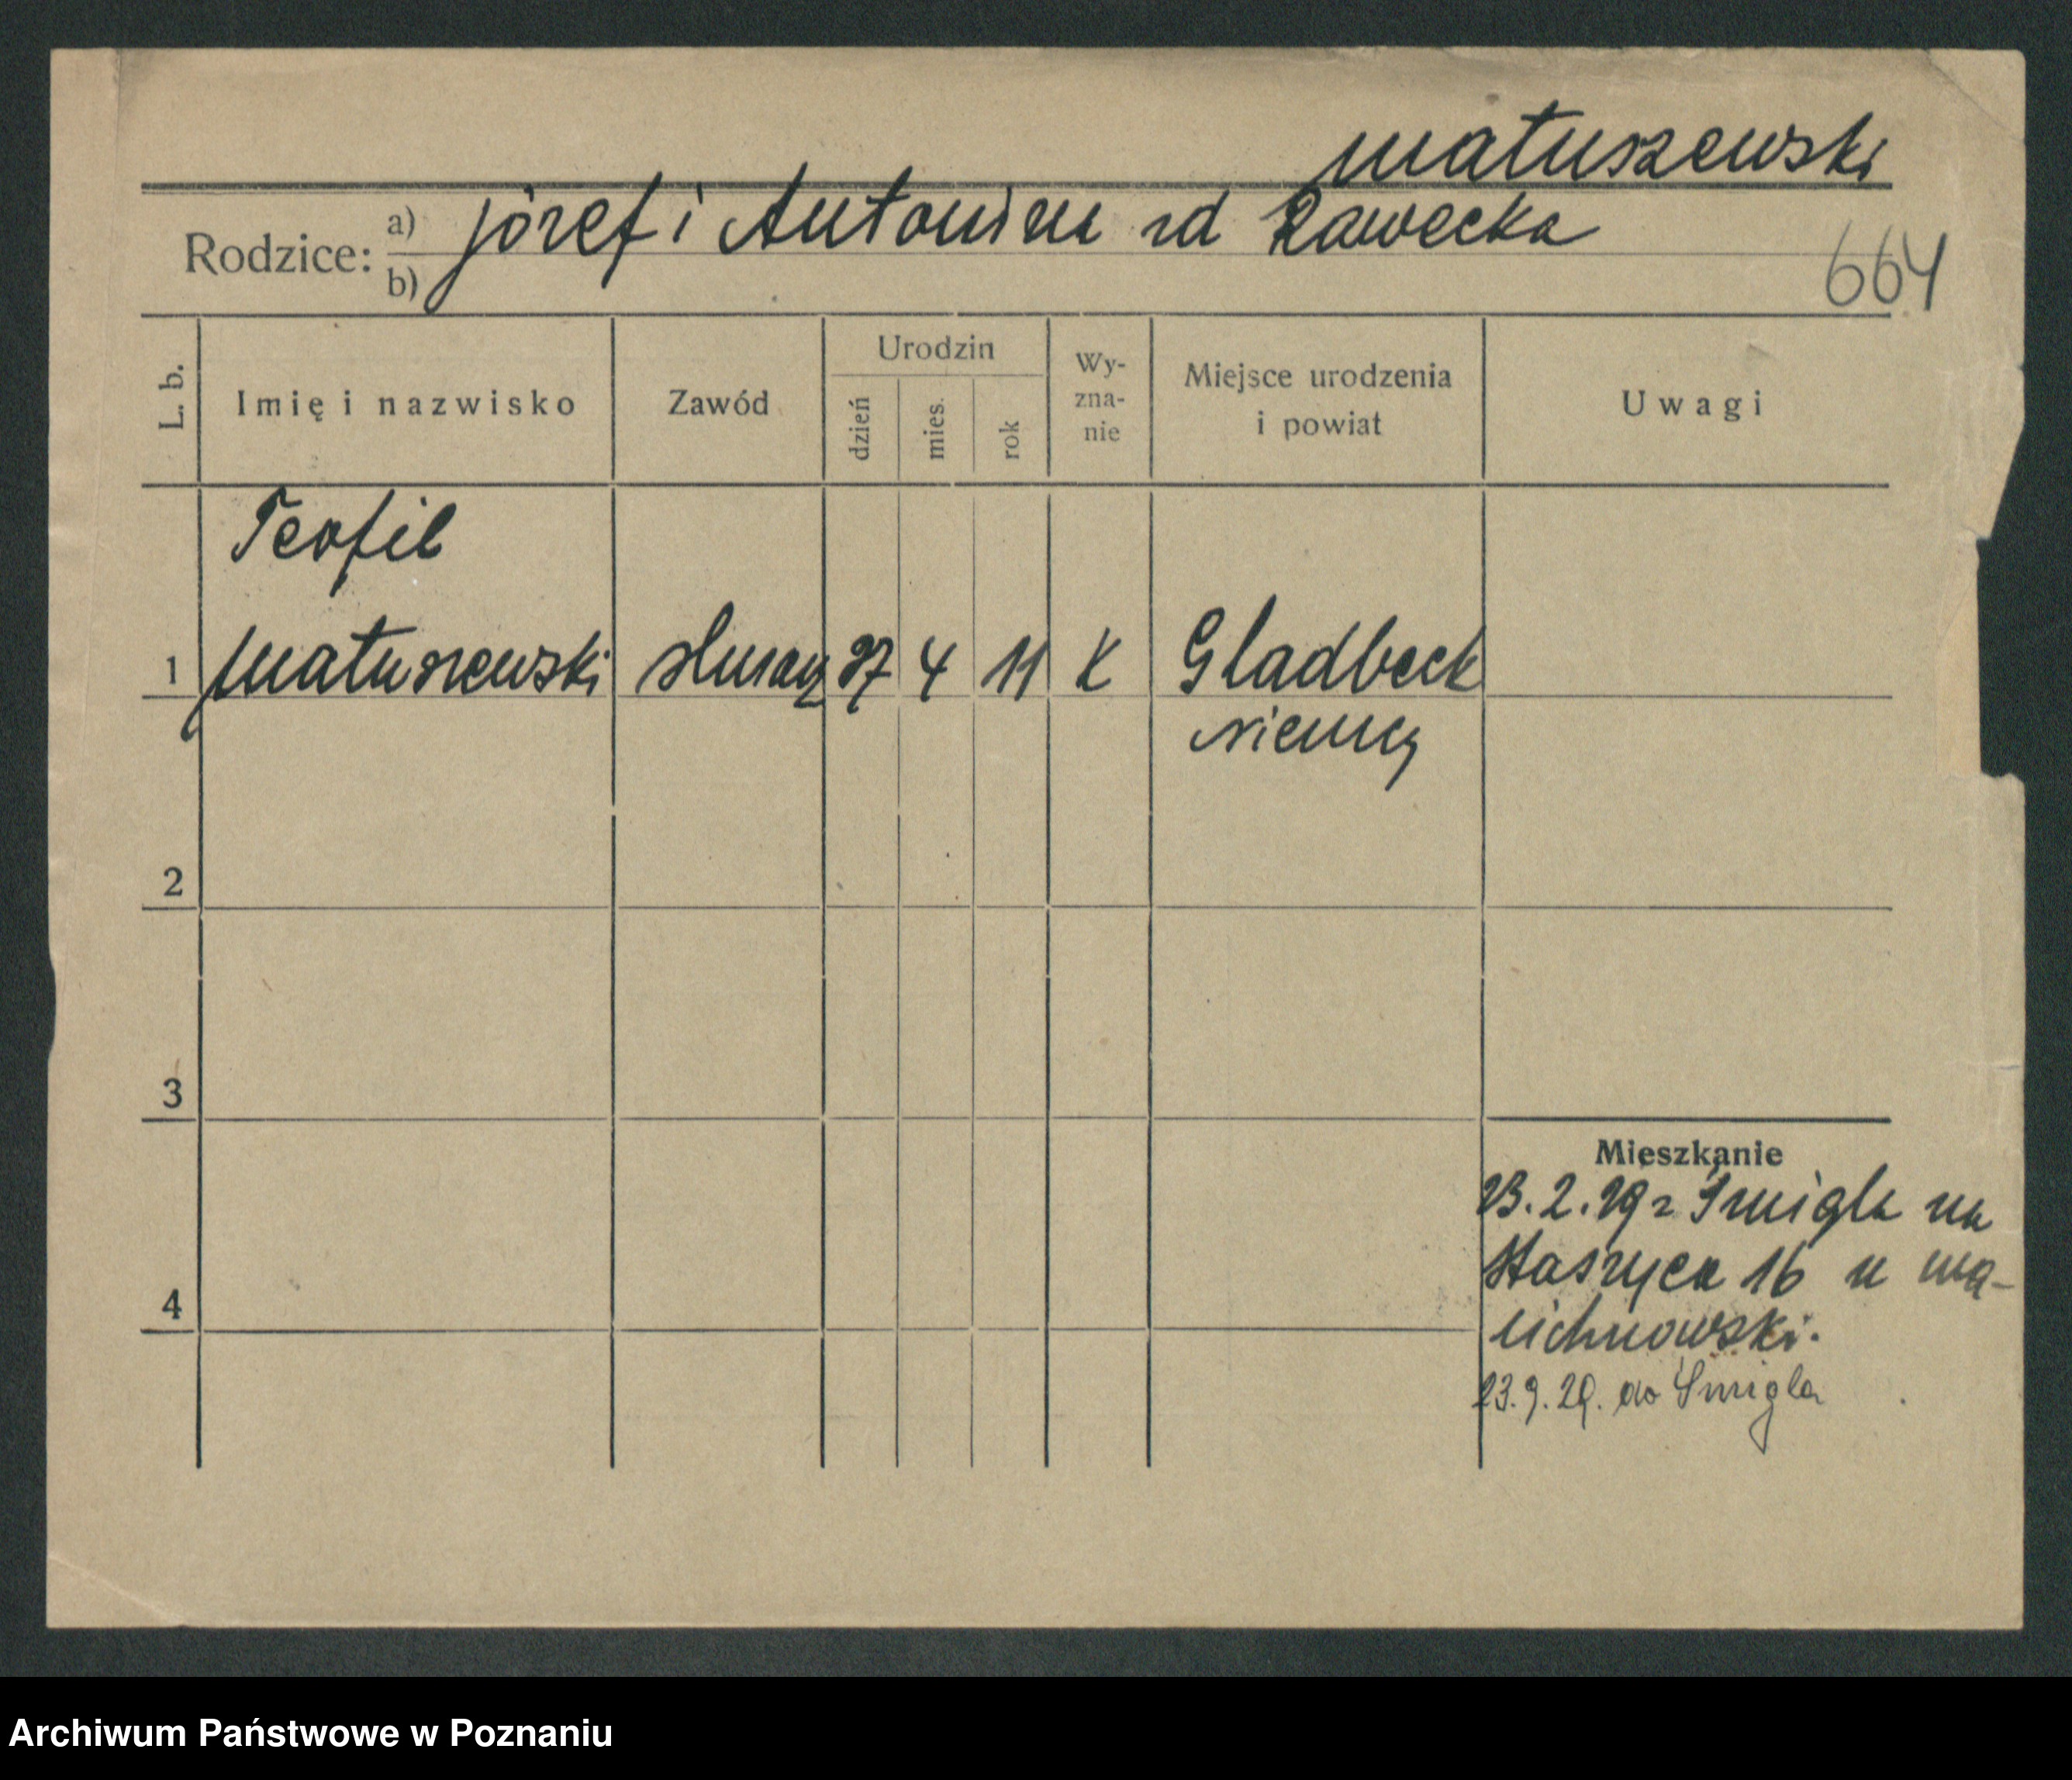 Matuszewski
Rodzice: a) Józef i Antonina zd Rawecka
b)
664
L. b. Imię i nazwisko Zawód Urodzin dzień mies. rok Wy-zna-nie Miejsce urodzenia i powiat Uwagi
Teofil
1 Matuszewski 27 4 11 K Gladbeck
Niemcy
2
3
Mieszkanie
23.2.29 z Śmigla na
Staszyca 16 u Ma-
lichnowski.
4
23.9.29. do Śmigla
Archiwum Państwowe w Poznaniu